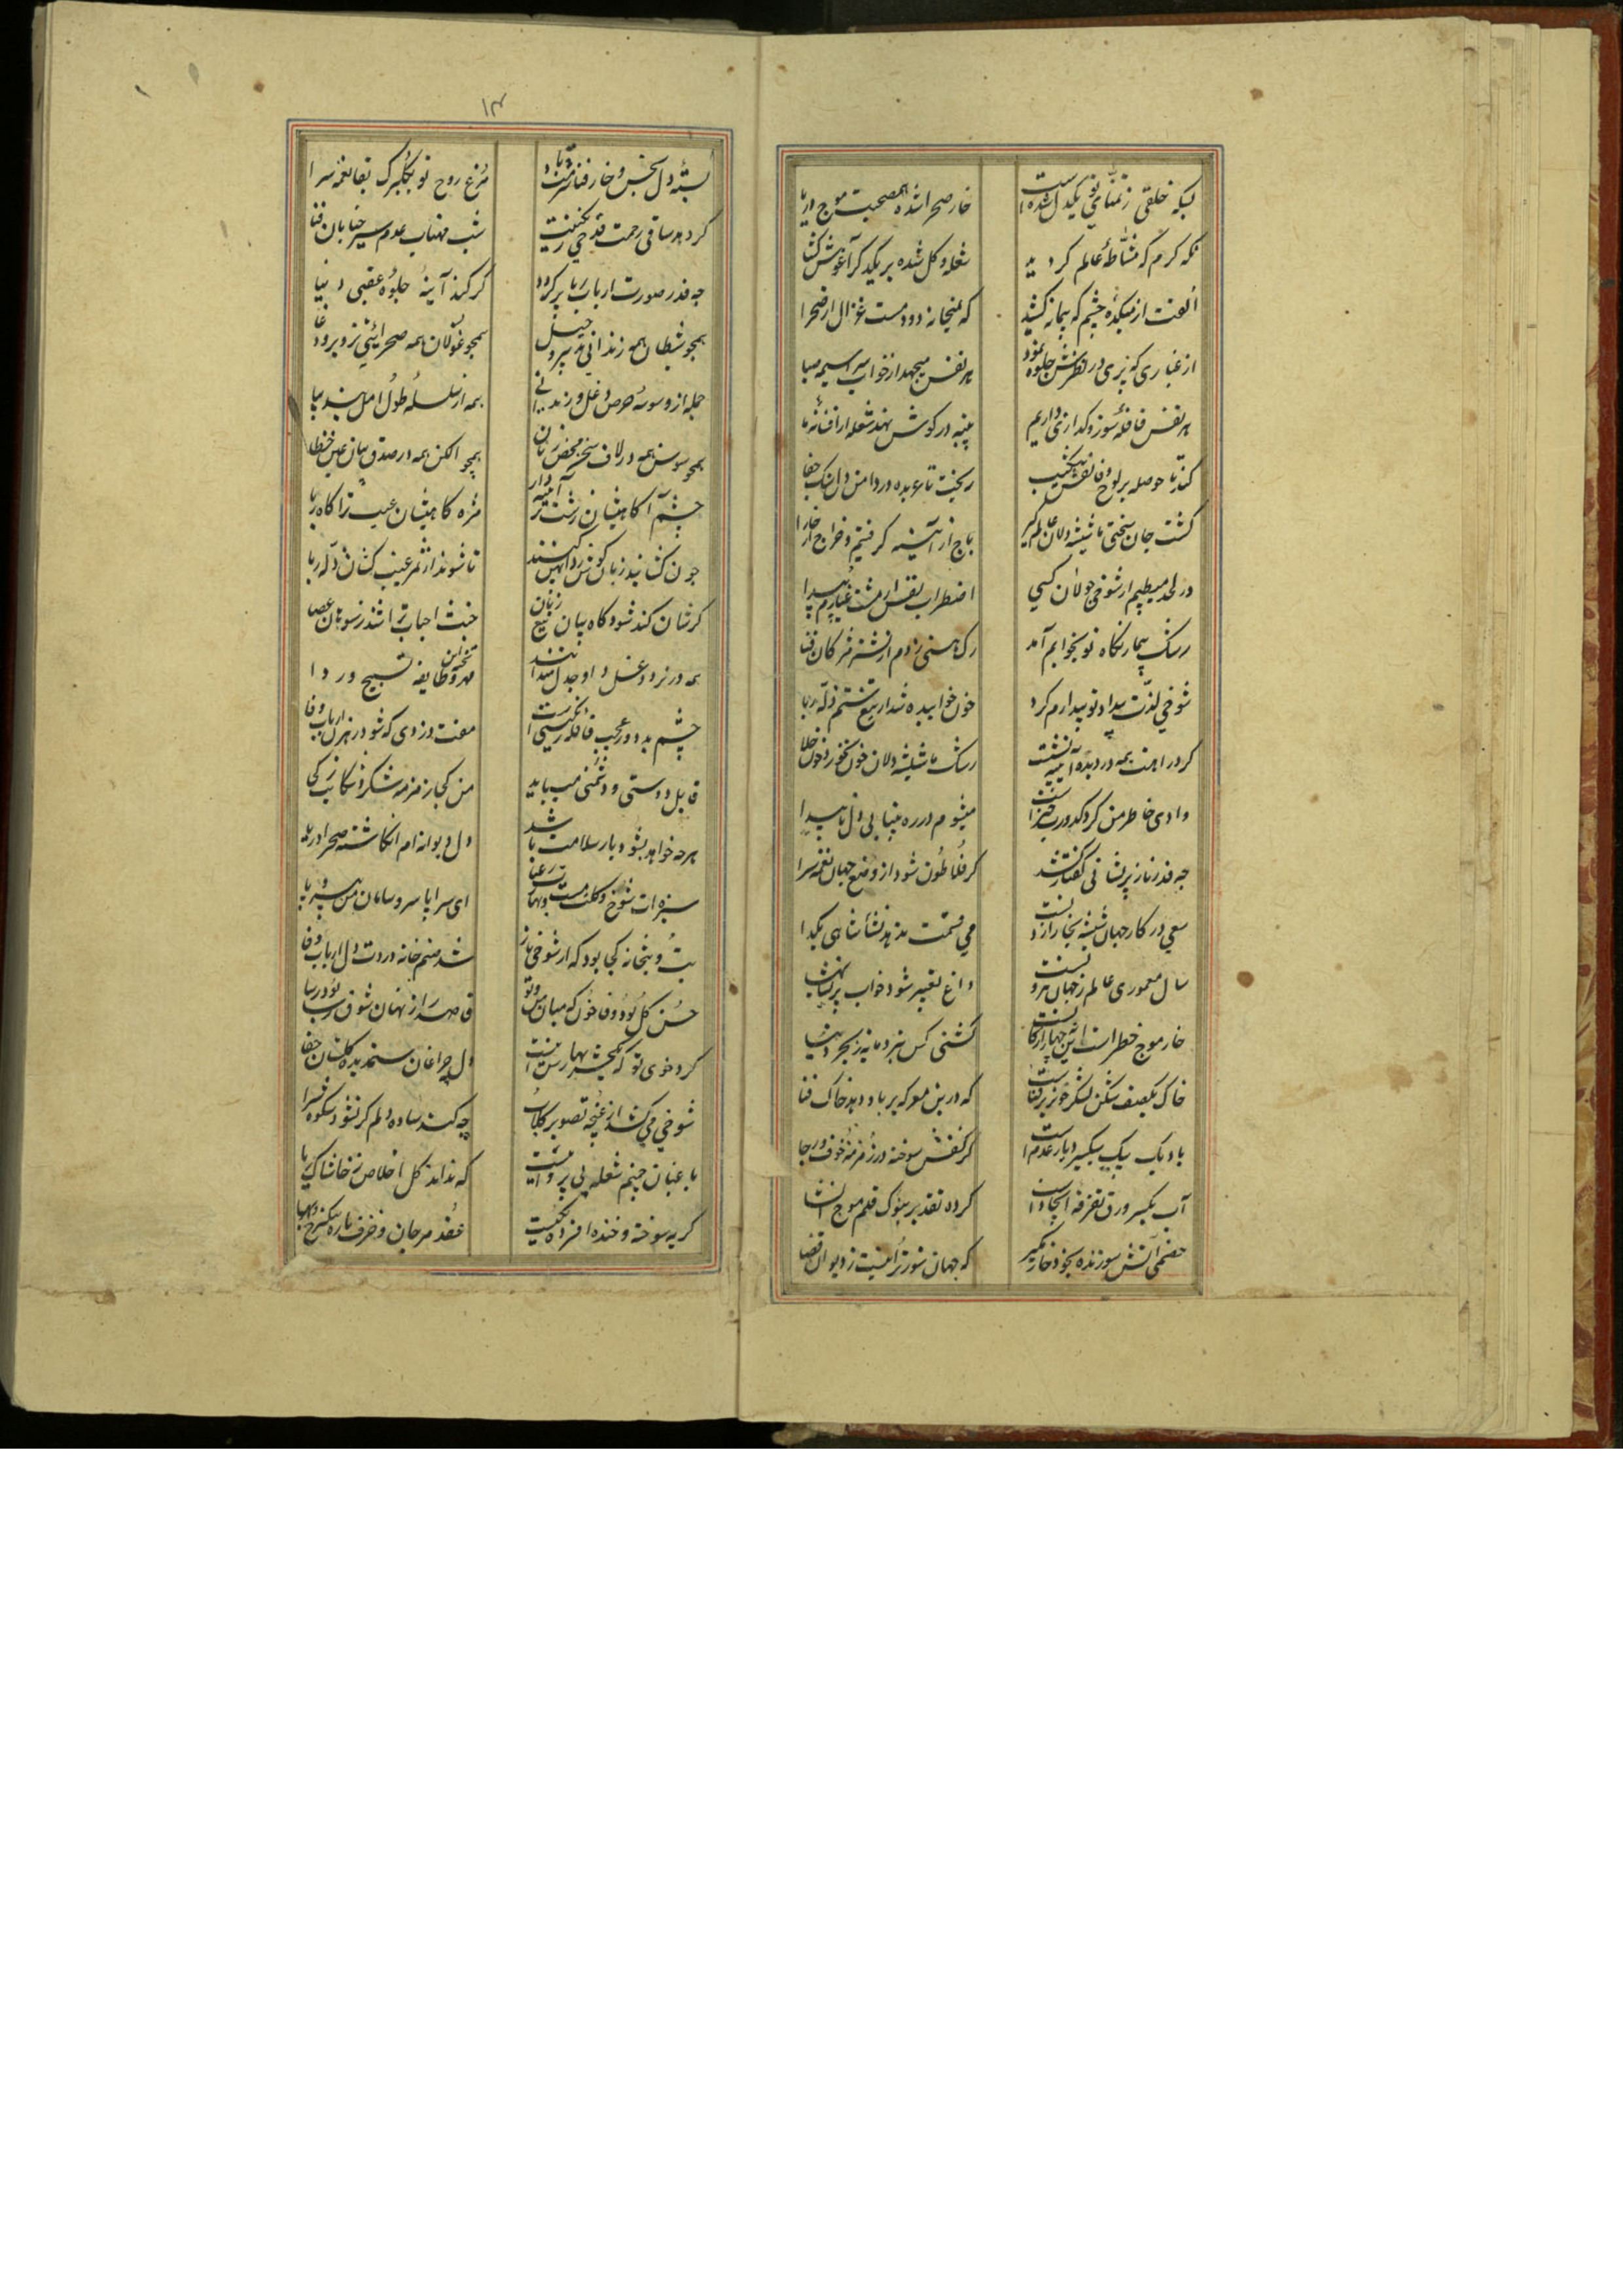 بسکه خلقی ز تمنای تو یکدل شده است
خار صحرا شده همصحبت موج دریا
نگه گرم که مشاطهٔ عالم گردید
شعله و گل شده بر یکدگر آغوش گشا
الفت از میکدهٔ چشم که پیمانه کشید
که بمیخانه دود مست غزال از صحرا
از غباری که پری در نظرش جلوه نمود
هر نفس میجهد از خواب سراسیمه صبا
هر نفس قافلهٔ سوز و گدازی داریم
پنبه در گوش نهد شعله ز افسانهٔ ما
کند تا حوصله بر لوح وفا نقش شکیب
ریخت تا عربده در دامن دل سنگ جفا
گشت جان سختی ما شیشه دلان عالمگیر
باج از آینه گرفتیم و خراج از خارا
در لحد میطپم از شوخی جولان کسی
اضطراب نفس از مشت غبارم پیدا
رشک پیمار نگاه تو بخوابم آمد
رگ هستی زدم از نشتر مژگان قضا
شوخی لذت بیداد تو بیدارم کرد
خون خوابیده شد از تیغ ستم زله ربا
گرد راهت همه در دیدهٔ آیینه نشست
رشک ما شیشه دلان خون نخورد خون حلا
وادی خاطر من گرد کدورت خیز است
میشوم در ره بیتابی دل ناپیدا
چه قدر ناز پریشانی گفتار کشد
گر فلاطون شود از وضع جهان نغمه سرا
سعی در کار جهان شیشه نجار ازدست
می قسمت ندهد نشأ شاهی بگدا
سال معموری عالم ز جهان بیرونست
داغ تعبیر شود خواب پریشان
خار موج خطر است این چهار ارکانست
کشتی کس نبرد مایه ز بحر دنیا
خاک یکصف شکن لشکر خونریز فناست
که درین معرکه بر باد دهد خاک فنا
باد یک پیک سبکسیر دیار عدم است
گر نفس سوخته در زمزمهٔ خوف و رجا
آب یکسر ورق تفرقه ایجاد است
کرده تقدیر بنوک قلم موج انشا
خصمی آتش سوزنده بخود خار مگیر
که جهان سوز تر آنیست ز دیوان قضا
۱۳
بستهٔ دل بخس و خار فنا
مرغ روح تو بگلبرگ بقا نغمه سرا
گر دهد ساقی رحمت قدحی کیفیت
شب مهتاب عدم سیر خیابان فنا
چه قدر صورت ارباب ریا برگردد
گر کند آینهٔ جلوهٔ عقبی دنیا
همچو شیطان همه زندانی تدبیر و حیل
همچو غولان همه صحرائی تزویر و دغا
جمله از وسوسهٔ حرص و غل و زندانی
همه از سلسلهٔ طول امل بند بپا
همچو سوسن همه در لاف سخن محض زبان
همچو الکن همه در صدق بیان عین خطا
چشم آگاهیشان زشت تر آیینه دار
مژه کاهیشان عیب ترا کاه ربا
چون گشایند زبان گوش
تا شوند از ثمر عیب کسان زله ربا
گرشان کند شود گاه بیان تیغ زبان
خبث احباب تراشند ز سوهان عصا
همه در نرد دغل داو جدل میدانند
مهره وظایفه تسبیح ورد ا
چشم بد دور عجب قافلهٔ رنگین است
مفت دزدی که شود رهزن ارباب وفا
قابل دوستی و دشمنی میباید
من کجا زمزمهٔ شکر و شکایت ز کجا
هرچه خواهد بشود یار سلامت باشد
دل دیوانه ام انگاشته صحرا دریا
سبزه ات شوخ و گلت مست و بهارت رعنا
ای سراپا سر و سامان من بی سر و پا
بت و بتخانه کجا بود که از شوخی ناز
شد صنم خانه دردت دل ارباب وفا
حسن گل بود وفا خون که میان من و تو
قاصد راز نهان شوق رسا
گرد خوی تو که همچشم بهارستانست
دل چراغان ستمدیدهٔ گلستان جفا
شوخی میکشد از غنچهٔ تصویر گلاب
چه کند ساده دلم گر نشود شکوه سرا
باغبان چشم شعله بی پروائیست
که نداند گل اخلاص ز خاشاک ریا
گریه سوخته و خنده افسرده یکیست
عقد مرجان و خزف